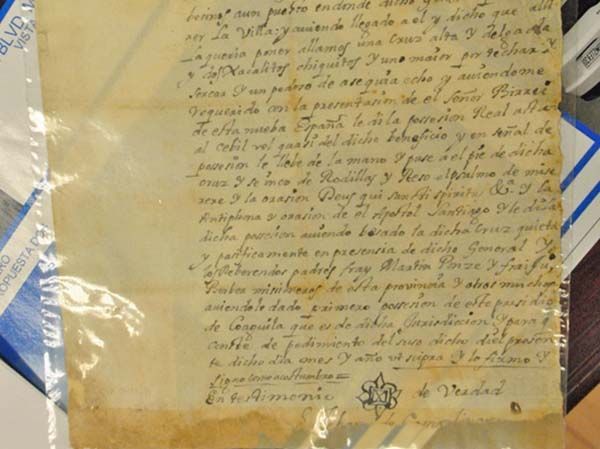 BLVD
VISTA
ROPUESTA DE
benimos a un pueblo en donde dicho
ser La Villa: y aviendo llegado a el y dicho que alli
La queria poner allamos una Cruz alta y delgada
y dos Xacalitos chiquitos y uno maior por techar y
sercas y un pedazo de asequia echo y aviendome
requerido con la presentasion de el señor Birrei
de esta nueba España le di la possesion Real actual
al cebil vel quasi del dicho beneficio y en señal de
possesion le llebe de la mano y pase a el pie de dicha
cruz y se inco de Rodillas y Reso el psalmo de mise
rere y la orasion Deus qui santi spiritu &a y la
Antiphona y orasion de el Apostol Santiago y le di la
dicha possesion aviendo besado la dicha Cruz quieta
y pasificamente en presensia de dicho General y
los Reberendos padres fray Martin Ponze y frai
misioneros de esta provincia y otros muchos
aviendole dado primero possesion de este presidio
de Coaguila que es de dicha Jurisdicion y para q
conste de pedimiento del suso dicho di el presen
te dicho dia mes y año ut supra y lo firmo y
signo como acostumbro =
En testimonio de Verdad